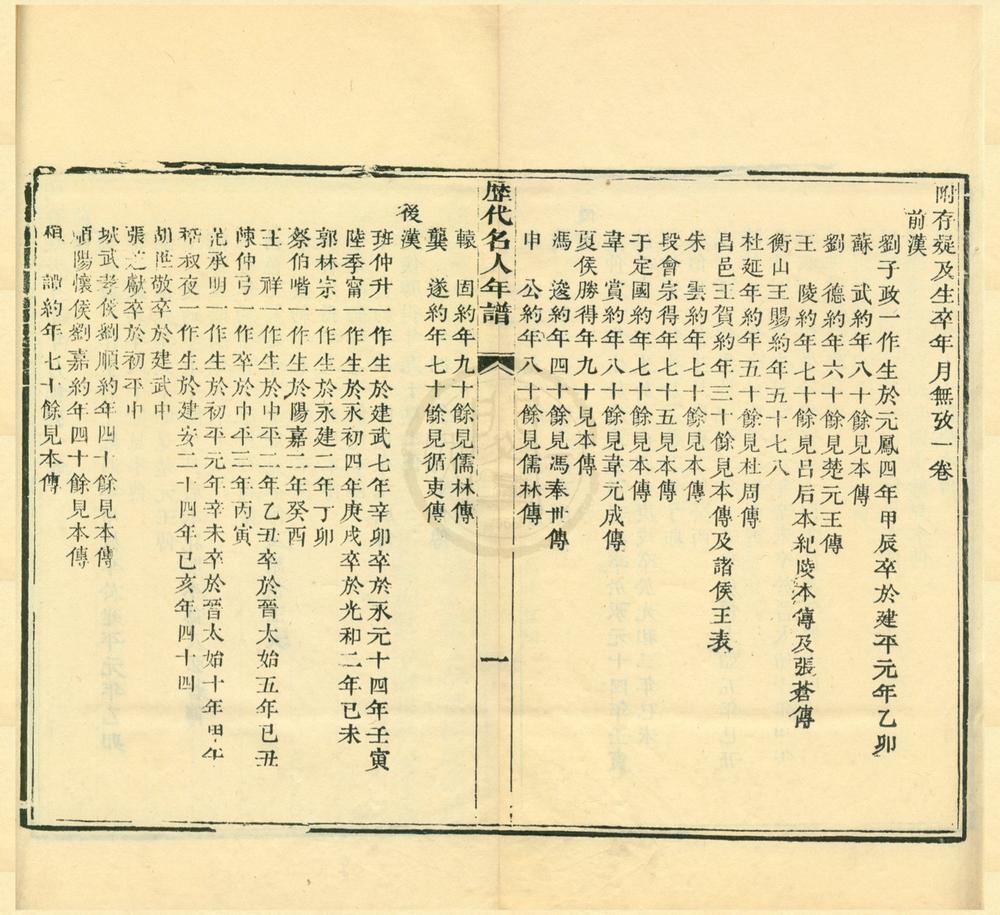 附存疑及生卒年月無攷一卷
前漢
劉子政一作生於元鳳四年甲辰卒於建平元年乙卯
蘇武約年八十餘見本傳
劉德約年六十餘見楚元王傳
王陵約年七十餘見呂后本紀陵本傳及張蒼傳
衡山王賜約年五十七八
杜延年年五十餘見杜周傳
昌邑王賀約年三十餘見本傳及諸侯王表
朱雲約年七十餘見本傳
段會宗得年七十五見本傳
于定國約年七十餘見本傳
韋賞約年八十餘見韋元成傳
夏侯勝得年九十見本傳
馮逡約年四十餘見馮奉世傳
申公約年八十餘見儒林傳
歷代名人年譜
一
轅固約年九十餘見儒林傳
龔遂約年七十餘見循吏傳
後漢
班仲升一作生於建武七年辛卯卒於永元十四年壬寅
陸季甯一作生於永初四年庚戌卒於光和二年己未
郭林宗一作生於永建二年丁卯
祭伯喈一作生於陽嘉二年癸酉
王祥一作生於中平二年乙丑卒於晉太始五年己丑
陳仲弓一作卒於中平三年丙寅
范承明一作生於初平元年辛未卒於晉太始十年甲午
嵇叔夜一作生於建安二十四年己亥年四十四
胡世敬卒於建武中
張之獻卒於初平中
城武孝侯劉順約年四十餘見本傳
順陽懷侯劉嘉約年四十餘見本傳
桓譚約年七十餘見本傳